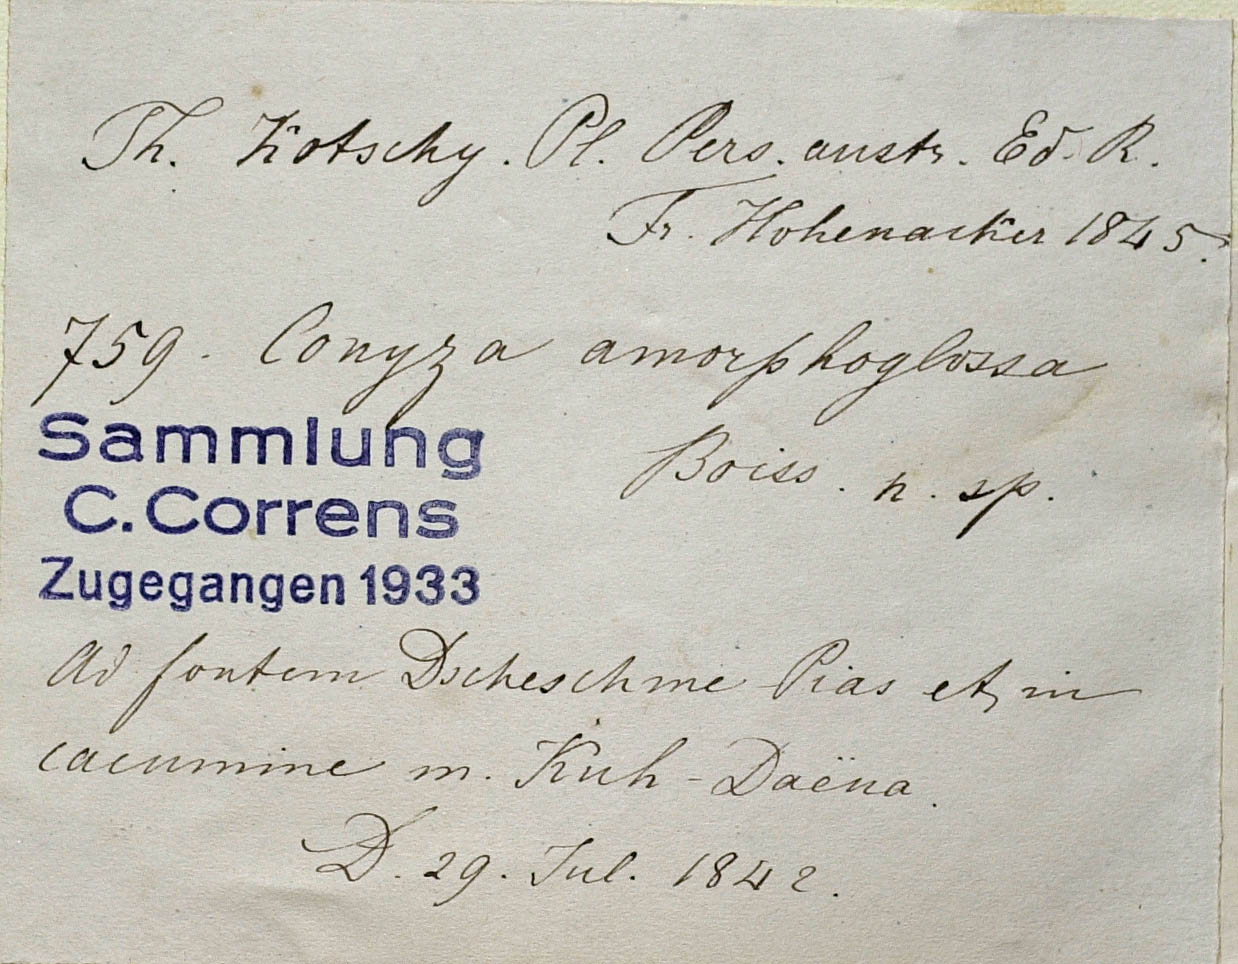 Th. Kotschy. Pl. Pers. austr. Ed. R.
Fr. Hohenacker 1845.
759. Conyza amorphoglossa
Boiss. n. sp.
Sammlung
C. Correns
Zugegangen 1933
Ad fontem Dscheschme Pias et in
cacumine m. Kuh-Daëna.
D. 29. Jul. 1842.